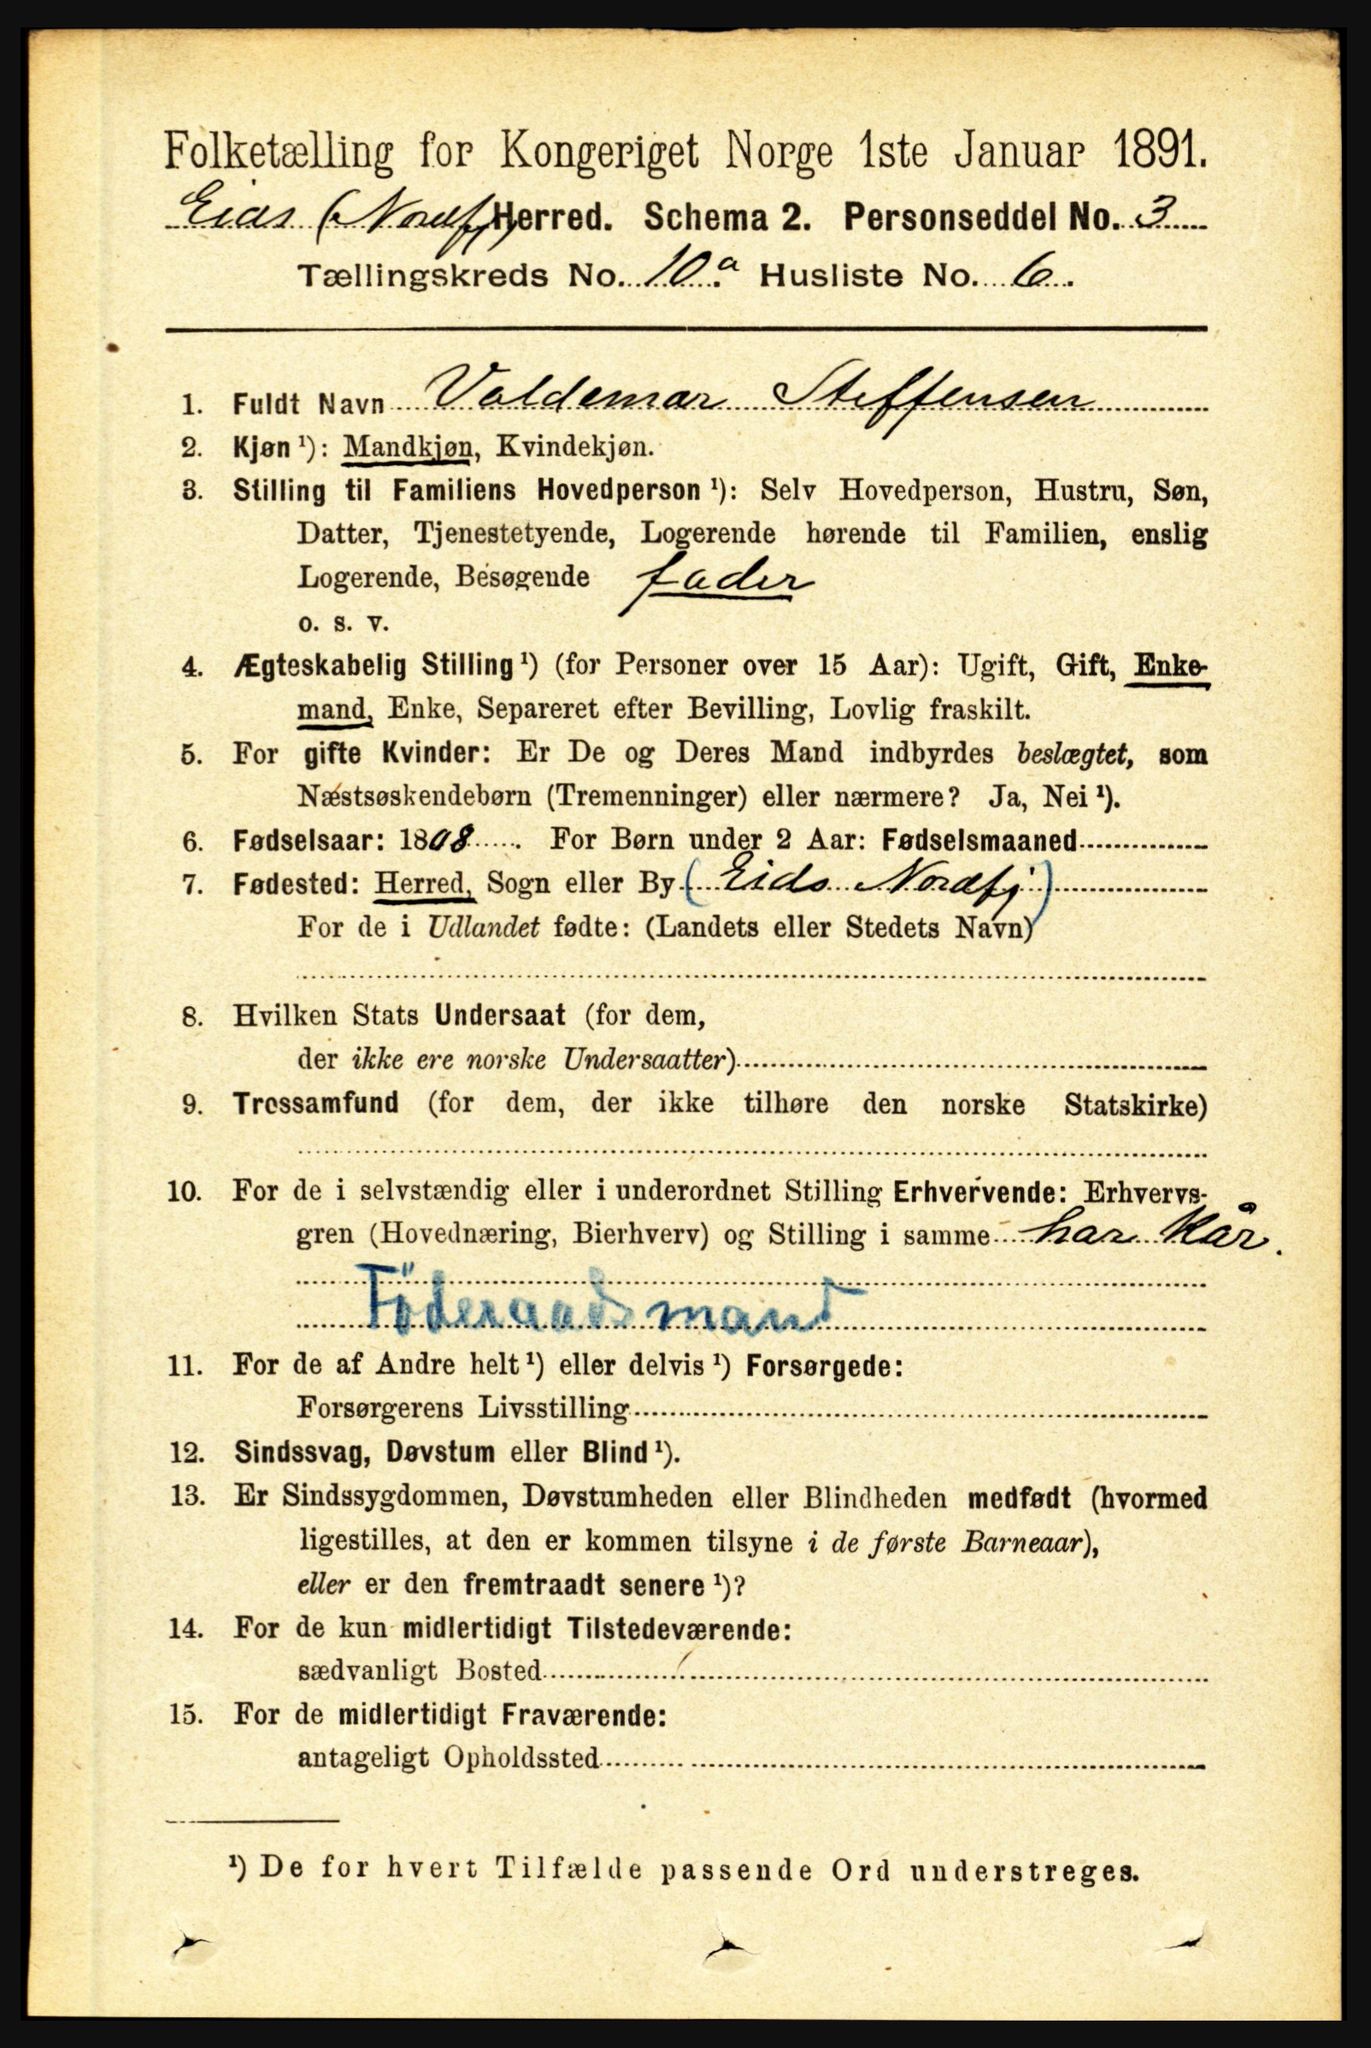 Folketælling for Kongeriget Norge 1ste Januar 1891.
Eids (Nordfj) Herred. Schema 2. Personseddel No. 3
Tællingskreds No. 10.a Husliste No. 6.
1. Fuldt Navn Valdemar Steffensen
2. Kjøn¹): Mandkjøn, Kvindekjøn.
3. Stilling til Familiens Hovedperson¹): Selv Hovedperson, Hustru, Søn,
Datter, Tjenestetyende, Logerende hørende til Familien, enslig
Logerende, Besøgende fader
o. s. v.
4. Ægteskabelig Stilling¹) (for Personer over 15 Aar): Ugift, Gift, Enke-
mand, Enke, Separeret efter Bevilling, Lovlig fraskilt.
5. For gifte Kvinder: Er De og Deres Mand indbyrdes beslægtet, som
Næstsøskendebørn (Tremenninger) eller nærmere? Ja, Nei¹).
6. Fødselsaar: 1808. For Børn under 2 Aar: Fødselsmaaned
7. Fødested: Herred, Sogn eller By (Eids Nordfj)
For de i Udlandet fødte: (Landets eller Stedets Navn)
8. Hvilken Stats Undersaat (for dem,
der ikke ere norske Undersaatter)
9. Trossamfund (for dem, der ikke tilhøre den norske Statskirke)
10. For de i selvstændig eller i underordnet Stilling Erhvervende: Erhvervs-
gren (Hovednæring, Bierhverv) og Stilling i samme har kår.
Föderaadsmand
11. For de af Andre helt¹) eller delvis¹) Forsørgede:
Forsørgerens Livsstilling
12. Sindssvag, Døvstum eller Blind¹).
13. Er Sindssygdommen, Døvstumheden eller Blindheden medfødt (hvormed
ligestilles, at den er kommen tilsyne i de første Barneaar),
eller er den fremtraadt senere¹)?
14. For de kun midlertidigt Tilstedeværende:
sædvanligt Bosted
15. For de midlertidigt Fraværende:
antageligt Opholdssted
¹) De for hvert Tilfælde passende Ord understreges.